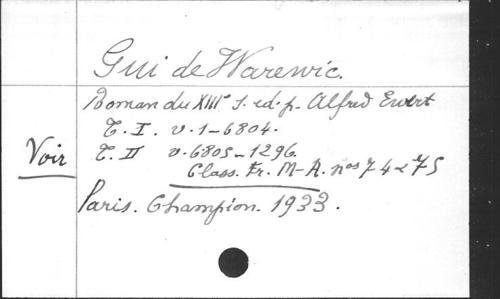 Gui de Warewic.
Roman du XIIIe s. ed. p. Alfred Ewert
T. I. v. 1-6804.
Voir
T. II v. 6805-1296.
Class. Fr. M-A. nos 74 & 75
Paris. Champion. 1933.